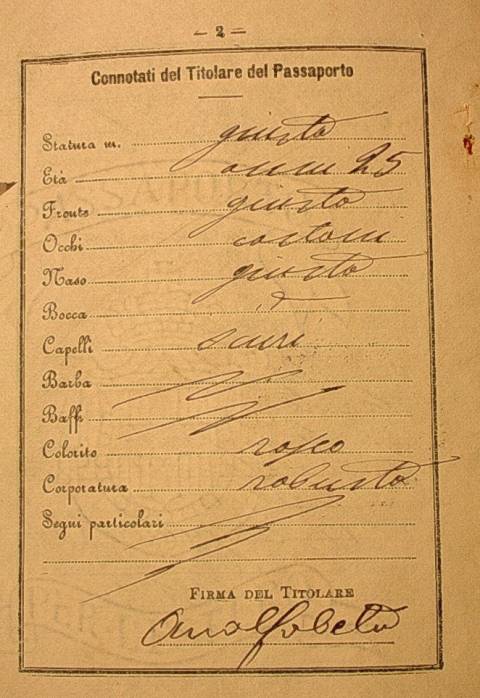 — 2 —
Connotati del Titolare del Passaporto
Statura m. giusta
Età anni 25
Fronte giusta
Occhi castani
Naso giusto
Bocca
Capelli scuri
Barba
Baffi
Colorito roseo
Corporatura robusta
Segni particolari
FIRMA DEL TITOLARE
Analfabeta